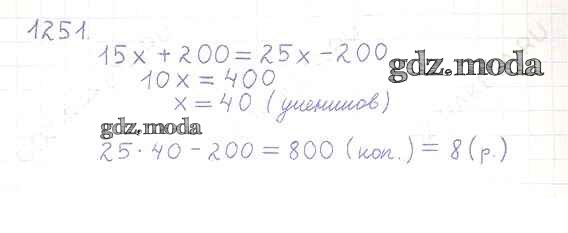 1251.
15x + 200 = 25x - 200
gdz.moda
10x = 400
x = 40 (учеников)
gdz.moda
25 · 40 - 200 = 800 (коп.) = 8 (р.)